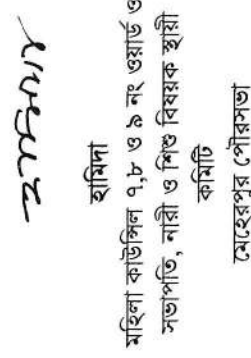 হামিদা
হামিদা
মহিলা কাউন্সিল ৭,৮ ও ৯ নং ওয়ার্ড ও
সভাপতি, নারী ও শিশু বিষয়ক স্থায়ী
কমিটি
মেহেরপুর পৌরসভা